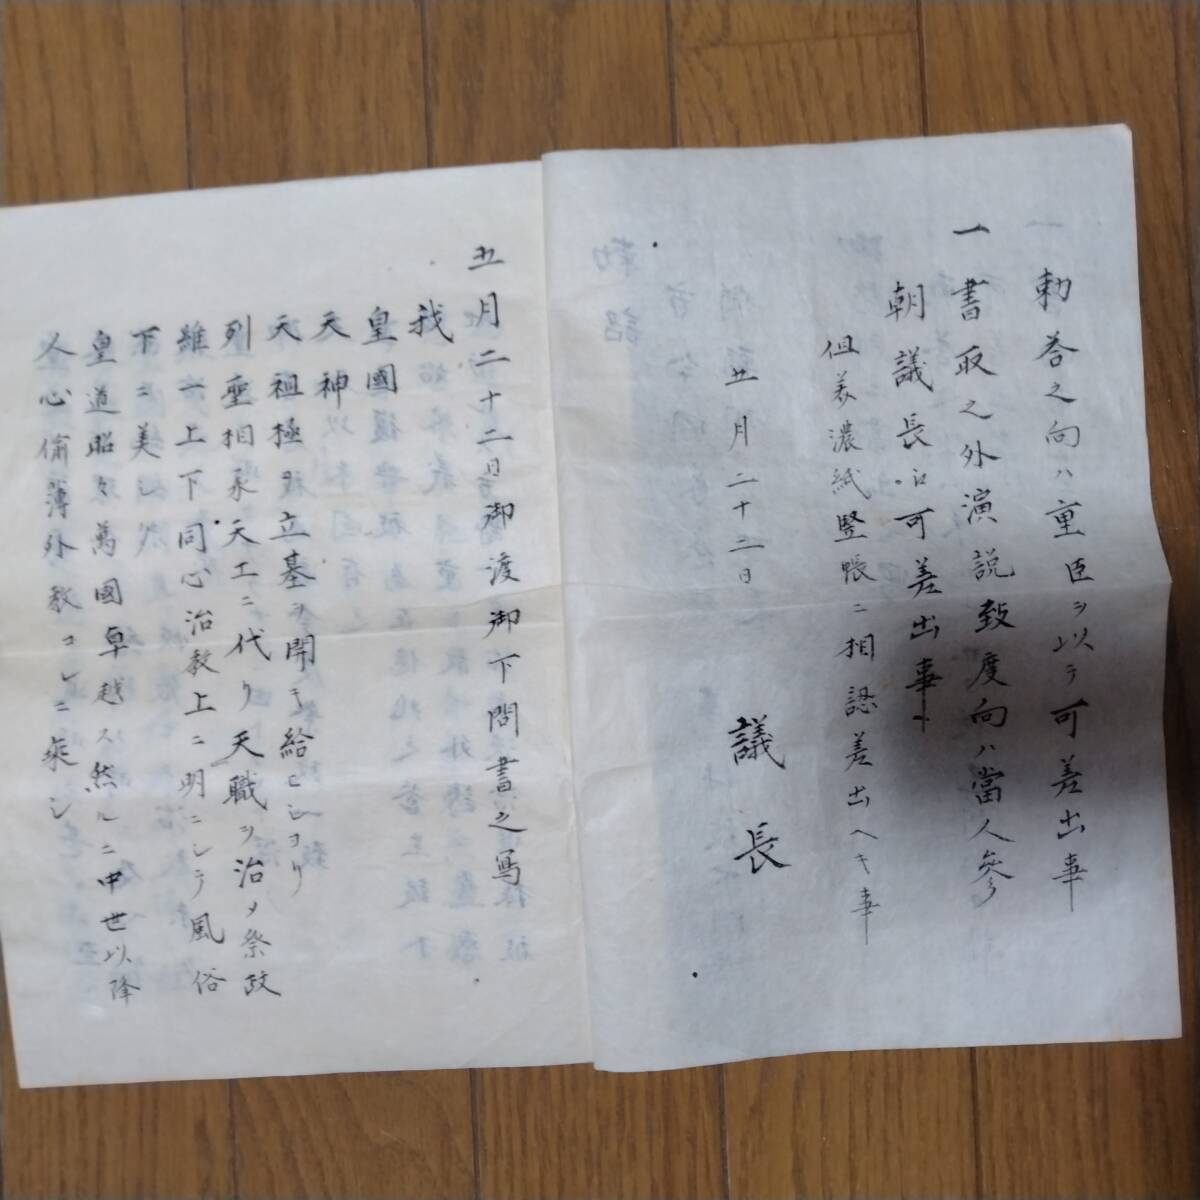 一 勅答之向ハ重臣ヲ以テ可差出事
一 書取之外演説致度向ハ當人參
朝議長ニ可差出事
但美濃紙竪帳ニ相認差出ヘキ事
五月二十二日
議長
五月二十二日御渡御下問書之写
我
皇國
天神
天祖極ヲ立基ヲ開キ給ヒシヨリ
列聖相承天工ニ代リ天職ヲ治メ祭政
維一上下同心治教上ニ明ニシテ風俗
下ニ美シク
皇道昭々萬國卓越ス然ルニ中世以降
人心偷薄外教コレニ乗シ